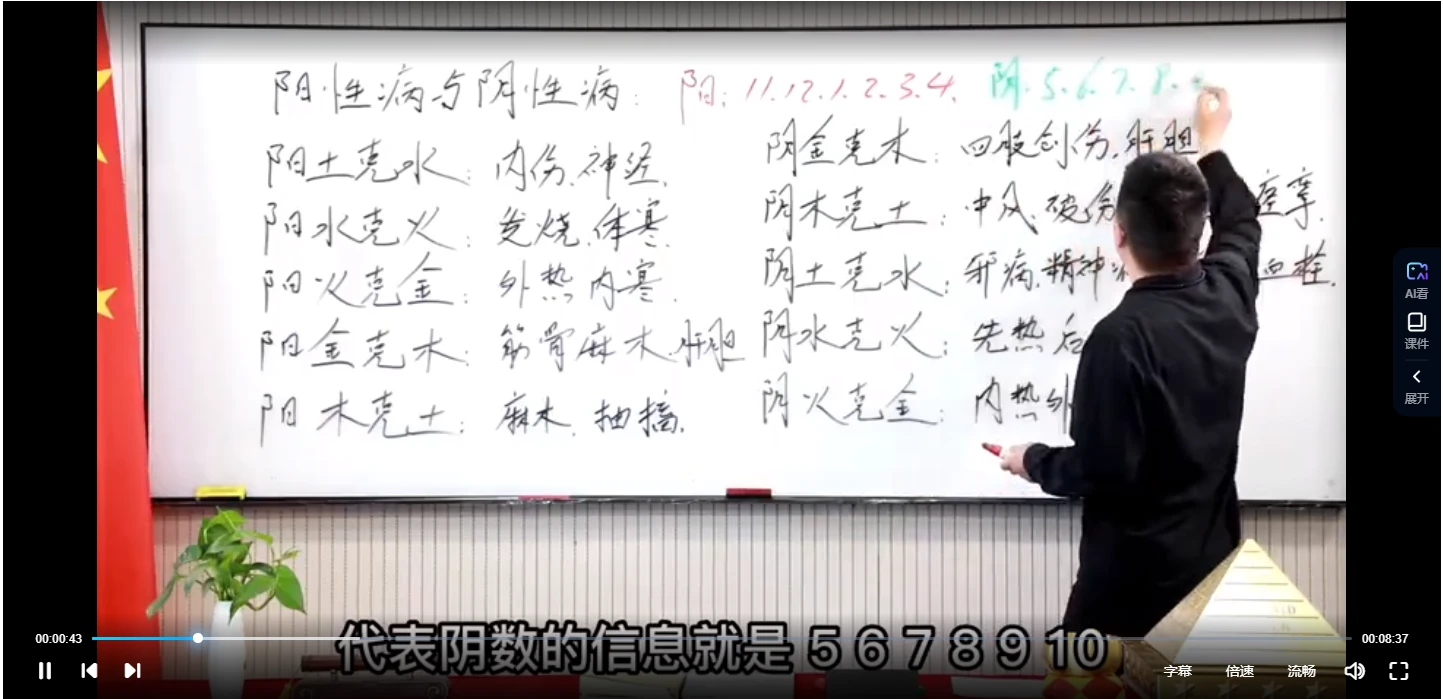 阳性病与阴性病: 阳: 11.12.1.2.3.4. 阴. 5.6.7.8.
阳土克水: 内伤.神经.
阳水克火: 发烧.体寒.
阳火克金: 外热内寒.
阳金克木: 筋骨麻木.肝胆
阳木克土: 麻木.抽搐.
阴金克木: 四肢创伤.肝胆
阴木克土: 中风.破伤
阴土克水: 邪病.精神 血栓.
阴水克火: 先热后
阴火克金: 内热外
AI看
课件
展开
代表阴数的信息就是 5 6 7 8 9 10
00:00:43
00:08:37
字幕 倍速 流畅